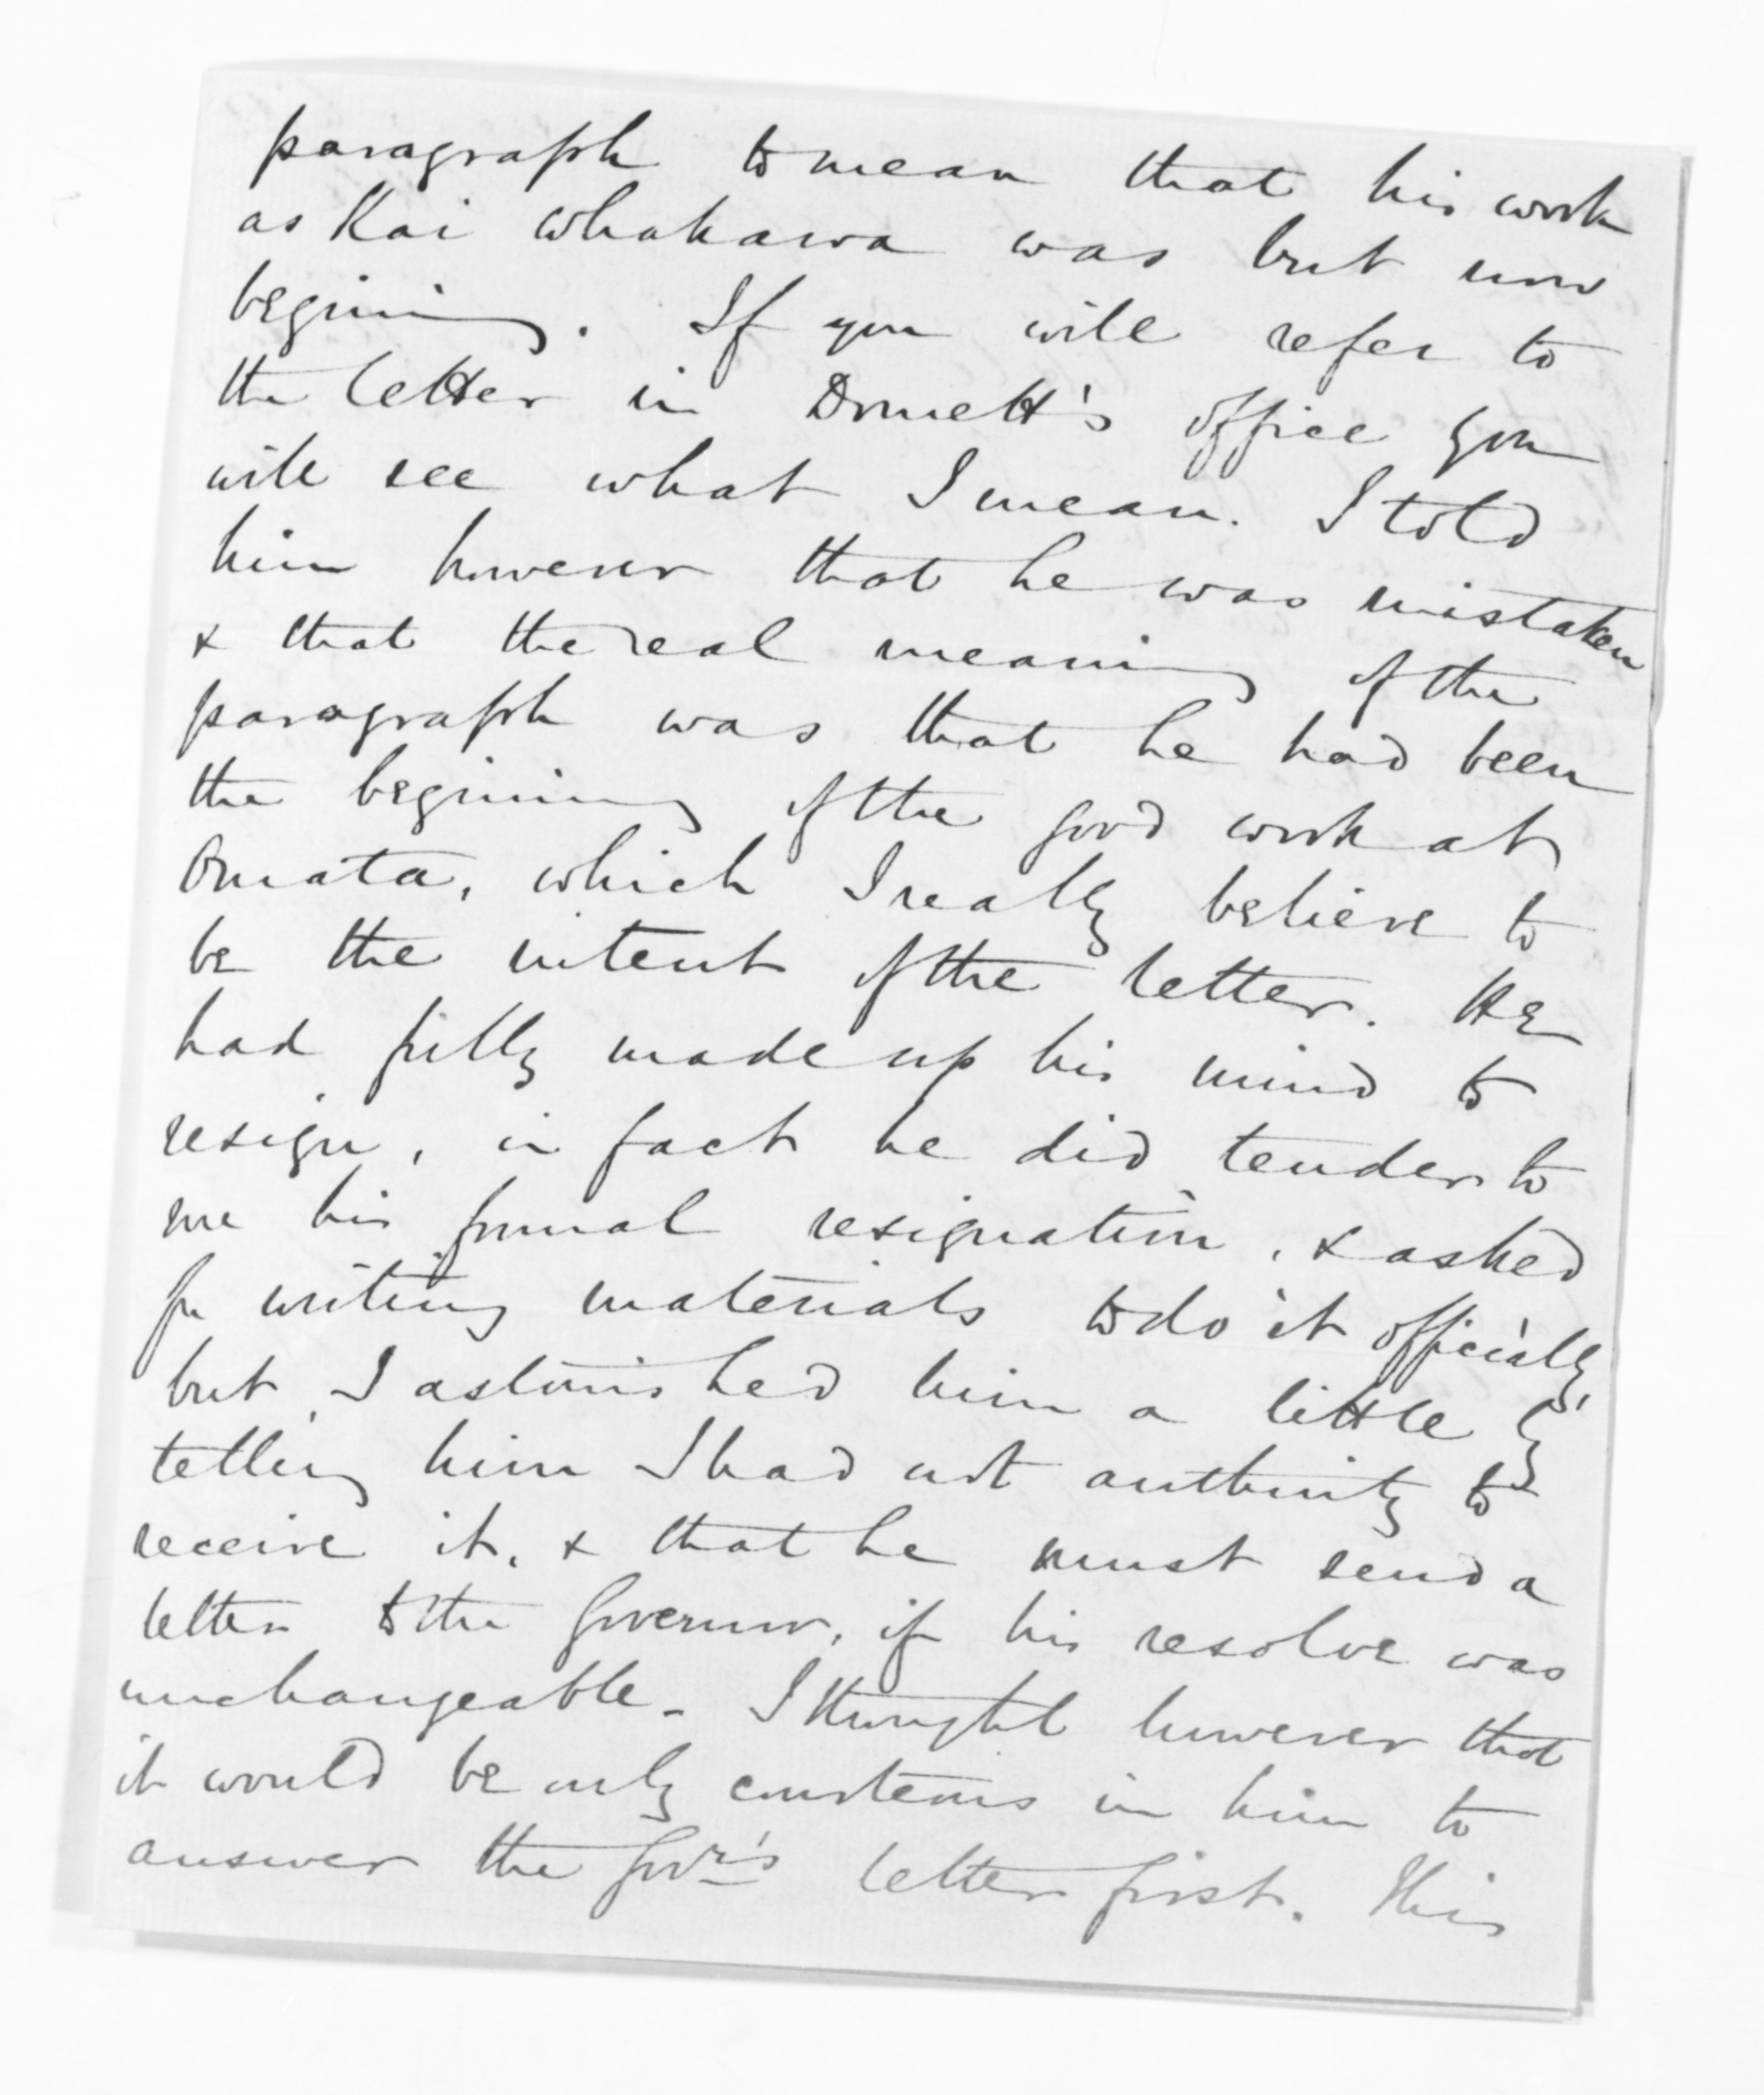 paragraph to mean that his work
as Kai whakawa was but now
begining. If you will refer to
the letter in Domett's office you
will see what I mean. I told
him however that he was mistaken
& that the real meaning of the
paragraph was that he had been
the begining of the good work at
Omata, which I really believe to
be the intent of the letter. He
had fully made up his mind to
resign, in fact he did tender to
me his formal resignation, & asked
for writing materials to do it officially,
but I astonished him a little by
telling him I had not authority to
receive it, & that he must send a
letter to the Governor, if his resolve was
unchangeable. I thought however that
it would be only courteous in him to
answer the Govr's letter first. This